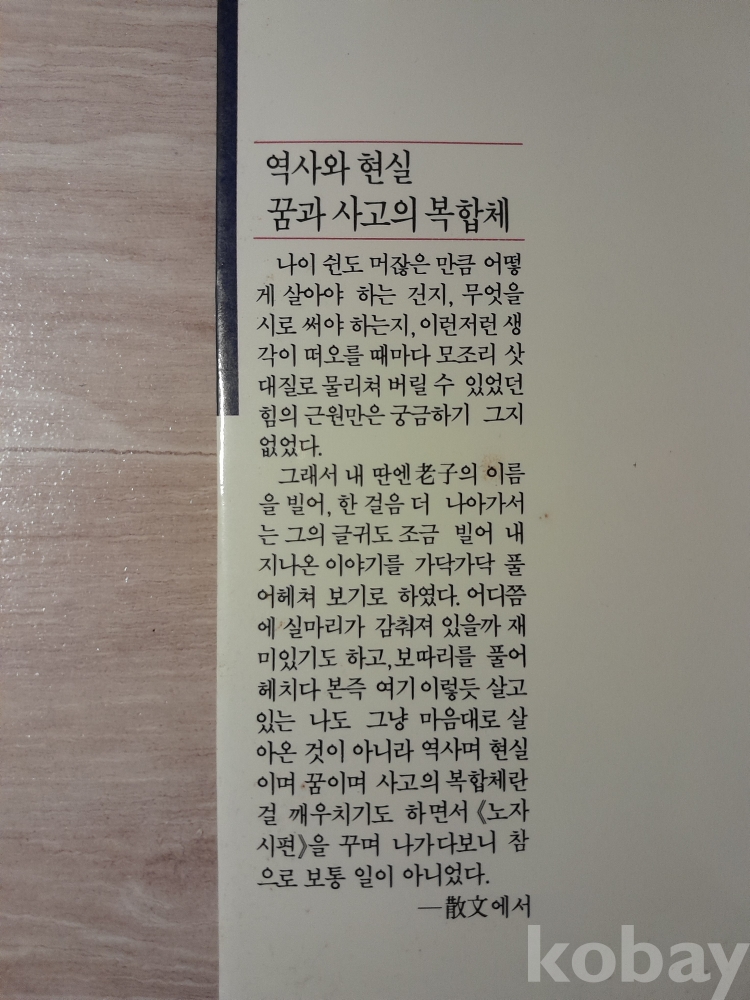 역사와 현실
꿈과 사고의 복합체
나이 쉰도 머잖은 만큼 어떻
게 살아야 하는 건지, 무엇을
시로 써야 하는지, 이런저런 생
각이 떠오를 때마다 모조리 삿
대질로 물리쳐 버릴 수 있었던
힘의 근원만은 궁금하기 그지
없었다.
그래서 내 딴엔 老子의 이름
을 빌어, 한 걸음 더 나아가서
는 그의 글귀도 조금 빌어 내
지나온 이야기를 가닥가닥 풀
어헤쳐 보기로 하였다. 어디쯤
에 실마리가 감춰져 있을까 재
미있기도 하고, 보따리를 풀어
헤치다 본즉 여기 이렇듯 살고
있는 나도 그냥 마음대로 살
아온 것이 아니라 역사며 현실
이며 꿈이며 사고의 복합체란
걸 깨우치기도 하면서 《노자
시편》을 꾸며 나가다보니 참
으로 보통 일이 아니었다.
—散文에서
kobay